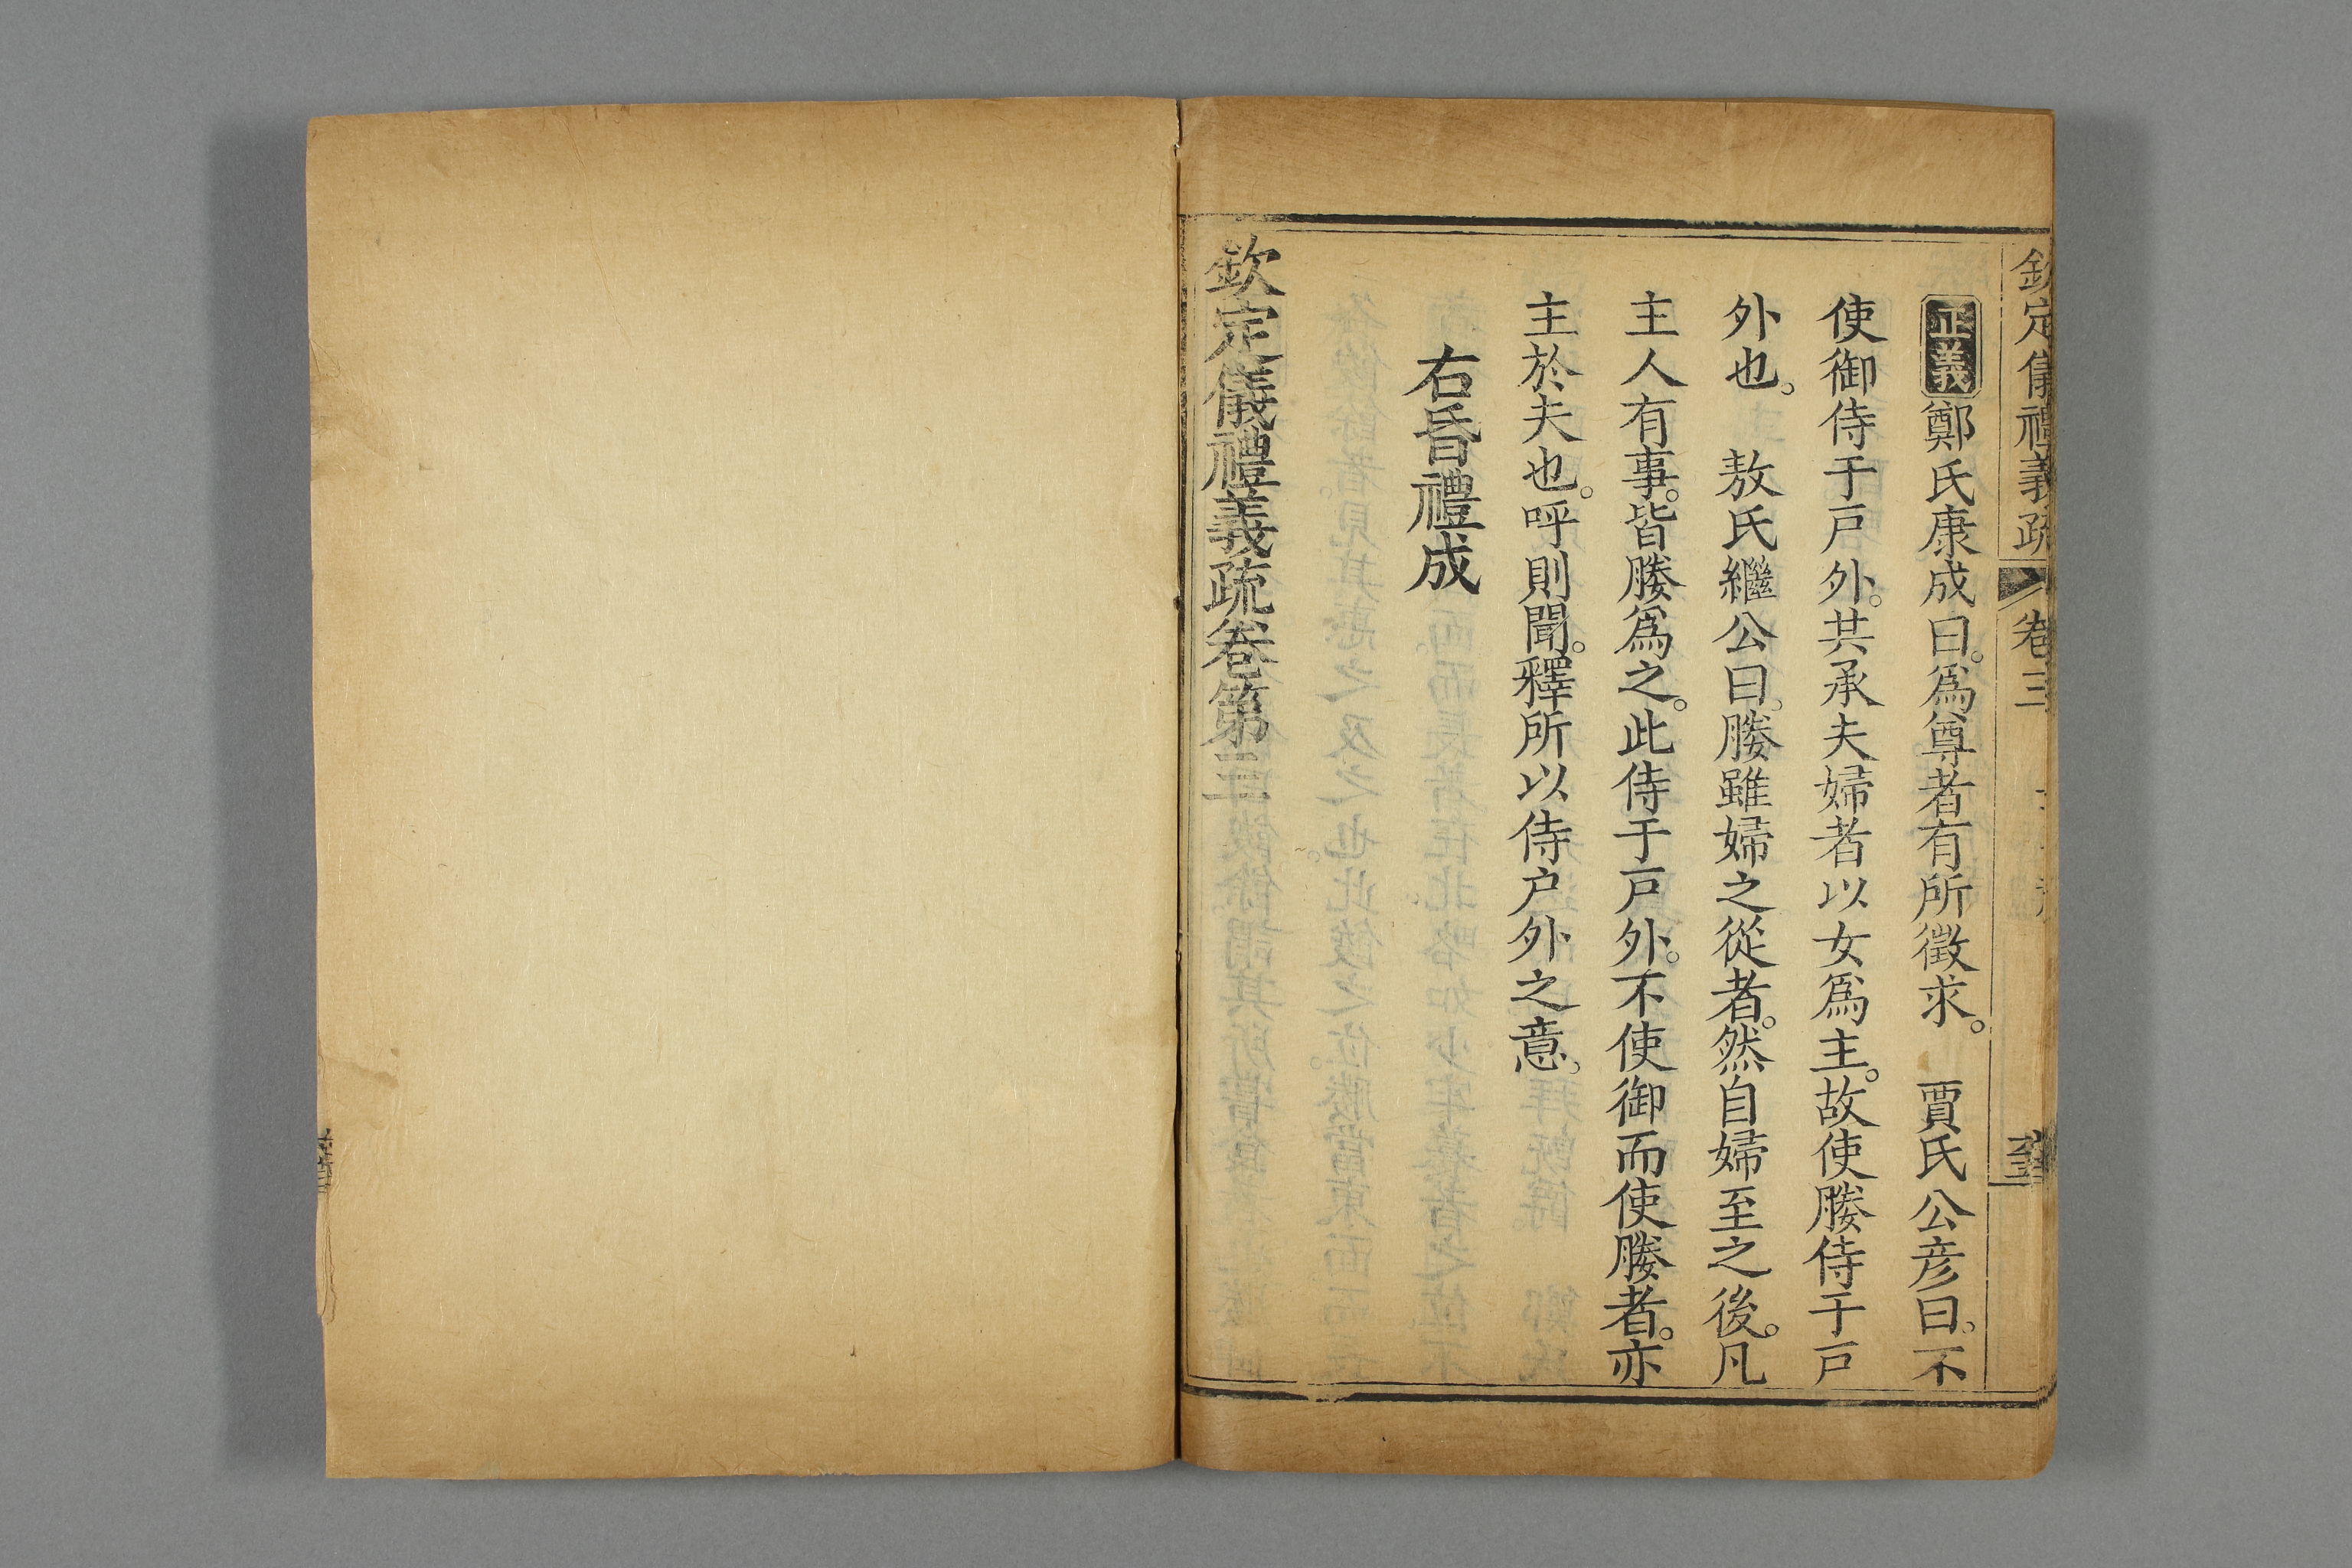 欽定儀禮義疏 卷三
正義鄭氏康成曰。爲尊者有所徵求。 賈氏公彦曰。不
使御侍于戸外。共承夫婦者以女爲主。故使媵侍于戸
外也。 敖氏繼公曰。媵雖婦之從者。然自婦至之後。凡
主人有事。皆媵爲之。此侍于戸外。不使御而使媵者。亦
主於夫也。呼則聞。釋所以侍户外之意。
右昏禮成
欽定儀禮義疏卷第三